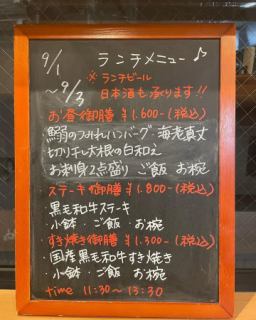 9/1 ランチメニュー♪
※ランチビール
～9/3 日本酒も承ります!!
お昼御膳 ¥1.600-(税込)
鰯のつみれハンバーグ 海老真丈
切り干し大根の白和え
お刺身2点盛り ご飯 お椀
ステーキ御膳 ¥1.800-(税込)
・黒毛和牛ステキ
・小鉢・ご飯・お椀
すき焼き御膳 ¥1.300-(税込)
・国産黒毛和牛すき焼き
・小鉢・ご飯・お椀
time 11:30～13:30